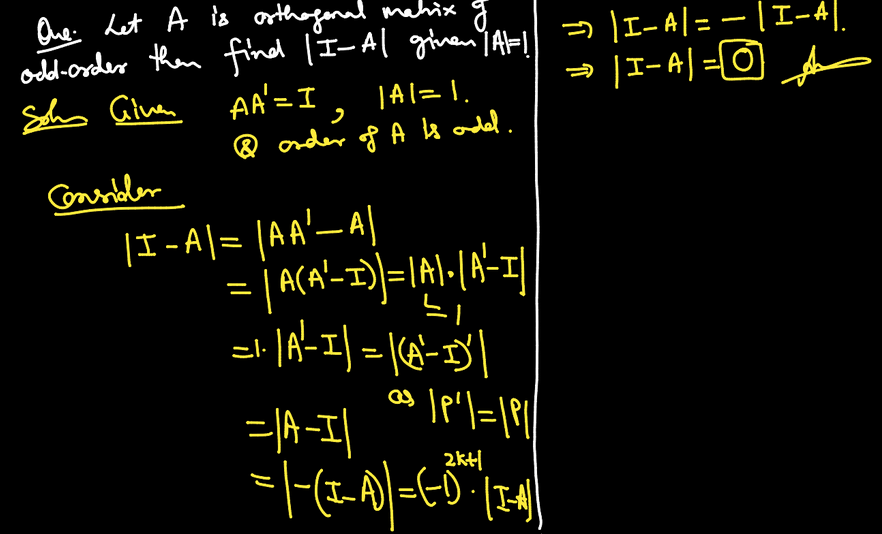 Que. Let A is orthogonal matrix of
odd-order then find |I-A| given |A|=1
Soln Given AA'=I, |A|=1.
& order of A is odd.
Consider
|I-A| = |AA'-A|
= |A(A'-I)| = |A|.|A'-I|
↳ = 1
= 1. |A'-I| = |(A'-I)'|
as |P'|=|P|
= |A-I|
= |-(I-A)| = (-1)^{2k+1} . |I-A|
⇒ |I-A| = - |I-A|.
⇒ |I-A| = 0